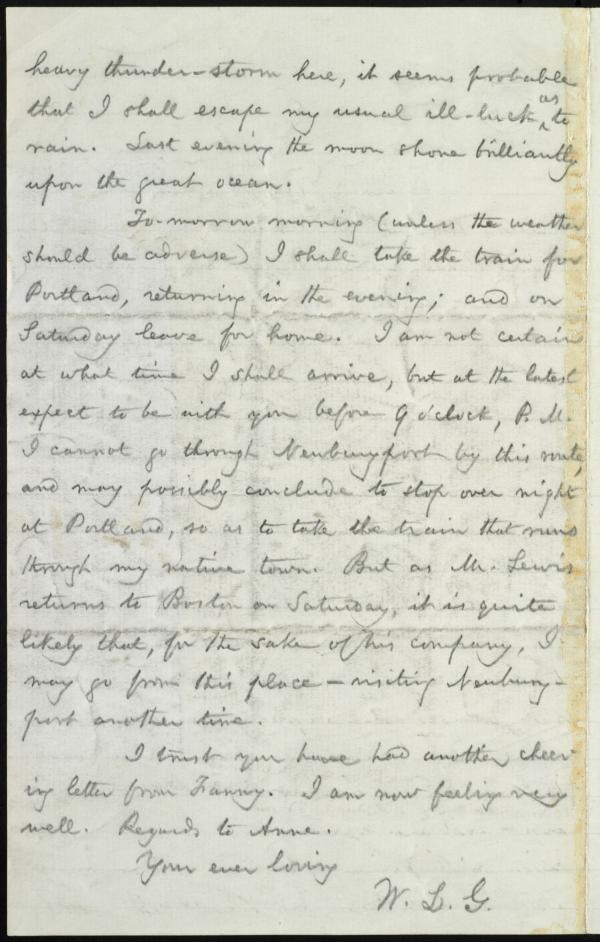 heavy thunder-storm here, it seems probable
that I shall escape my usual ill-luck as to
rain. Last evening the moon shone brilliantly
upon the great ocean.
To-morrow morning (unless the weather
should be adverse) I shall take the train for
Portland, returning in the evening; and on
Saturday leave for home. I am not certain
at what time I shall arrive, but at the latest
expect to be with you before 9 o'clock, P. M.
I cannot go through Newburyport by this route,
and may possibly conclude to stop over night
at Portland, so as to take the train that runs
through my native town. But as Mr. Lewis
returns to Boston on Saturday, it is quite
likely that, for the sake of his company, I
may go from this place – visiting Newbury-
port another time.
I trust you have had another cheer
ing letter from Fanny. I am now feeling very
well. Regards to Anne.
Your ever loving
W. L. G.